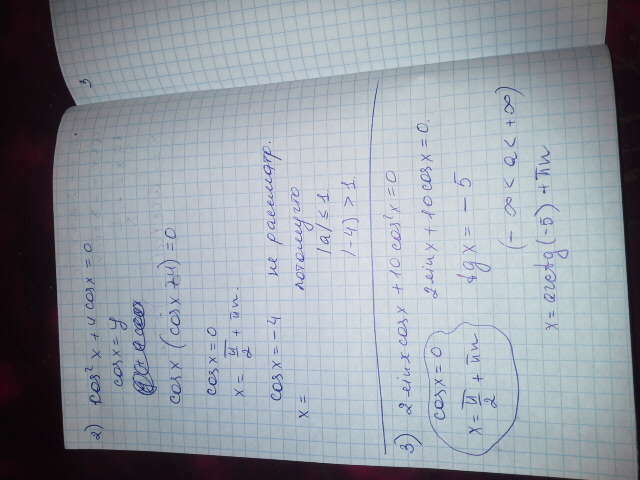 2) cos² x + 4 cos x = 0
cos x = y
cos x (cos x + 4) = 0
cos x = 0
x = π/2 + πn.
cos x = -4 не рассматр.
x = потому что
|a| ≤ 1
|-4| > 1
3) 2 sin x cos x + 10 cos² x = 0
cos x = 0 2 sin x + 10 cos x = 0.
x = π/2 + πn tg x = -5
(-∞ < a < +∞)
x = arctg(-5) + πn
3